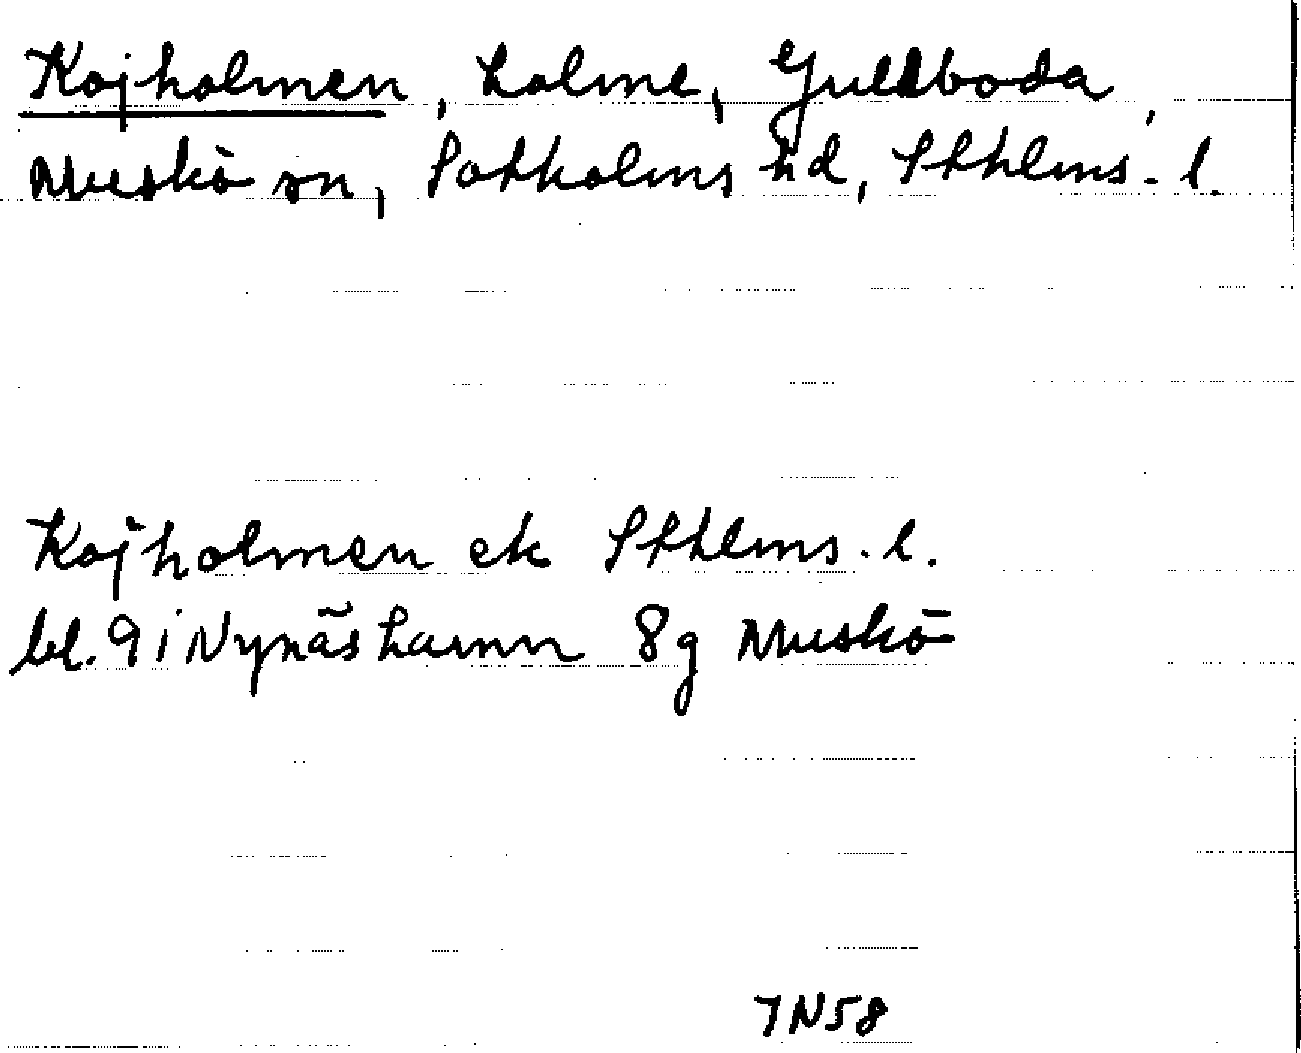 Kojholmen, holme, Gullboda,
Muskö sn, Sotholms hd, Sthlms. l.
Kojholmen ek Sthlms. l.
bl. 9 i Nynäshamn 8g Muskö
7N58